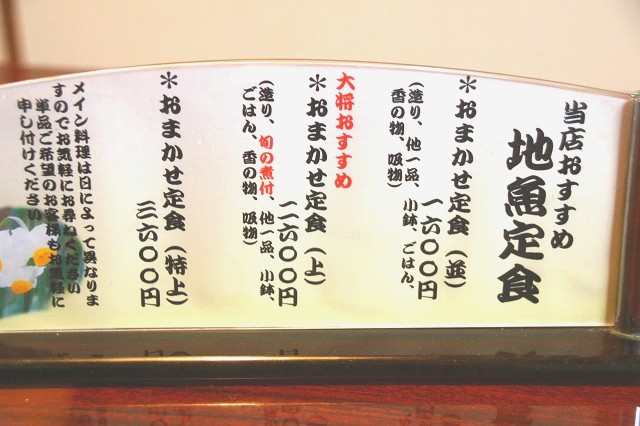 当店おすすめ
地魚定食
＊おまかせ定食（並）
一六〇〇円
（造り、他一品、小鉢、ごはん、
香の物、吸物）
大将おすすめ
＊おまかせ定食（上）
二六〇〇円
（造り、旬の煮付、他一品、小鉢、
ごはん、香の物、吸物）
＊おまかせ定食（特上）
三六〇〇円
メイン料理は日によって異なりま
すのでお気軽にお尋ねください
単品ご希望のお客様もお気軽に
申し付けください